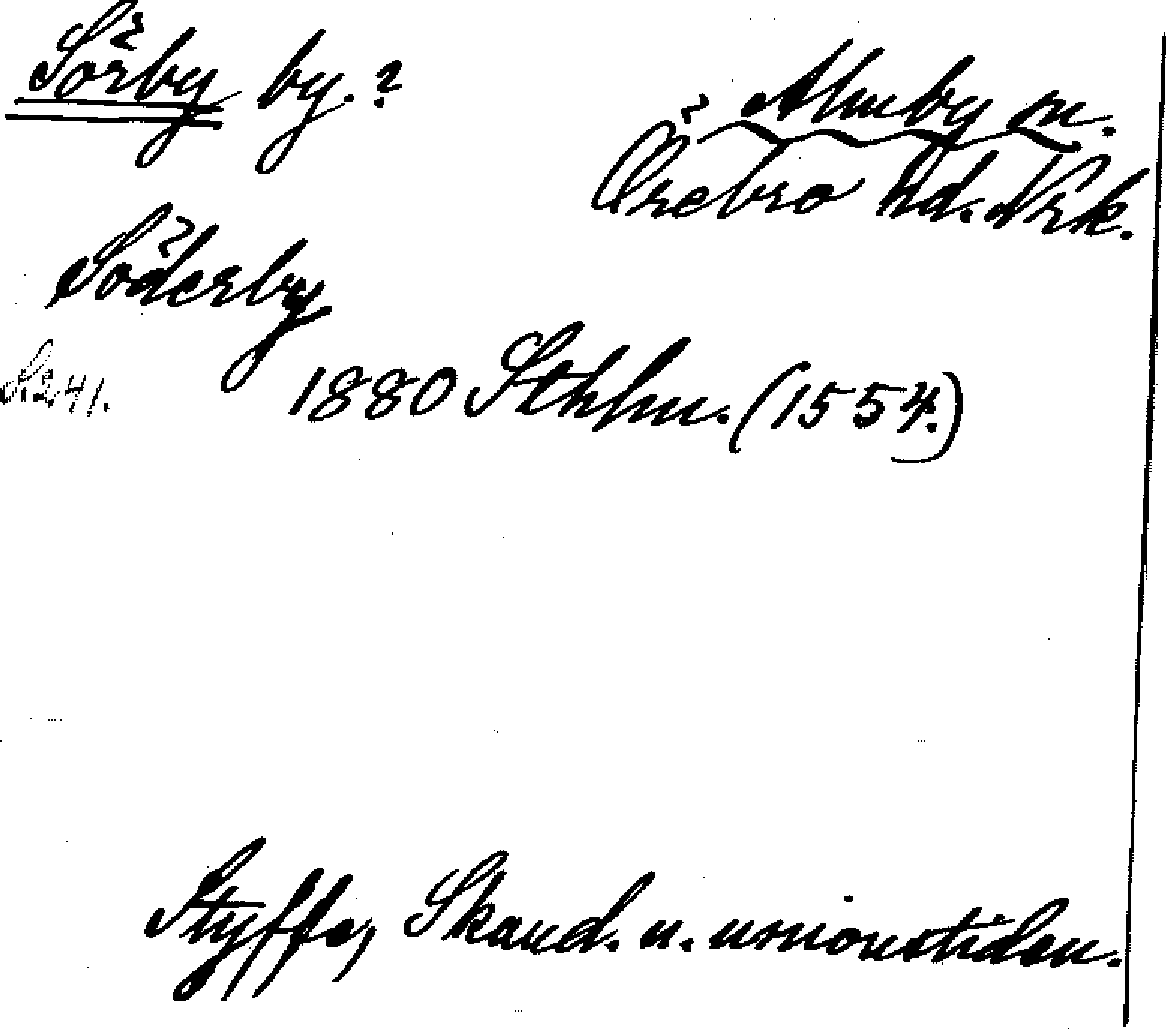 Sörby by.?
Almby sn.
Örebro hd. Nrk.
Söderby
S. 241.
1880 Sthlm. (1554.)
Styffe, Skand. u. unionstiden.